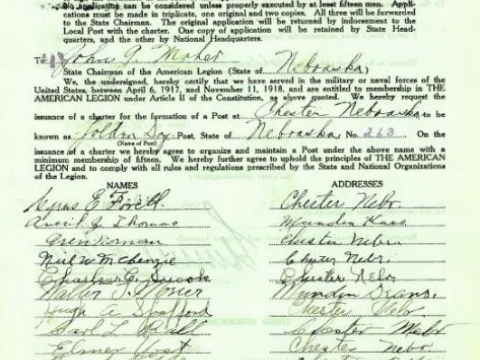 No application can be considered unless properly executed by at least fifteen men. Appli-
cations must be made in triplicate, one original and two copies. All three will be forwarded
to the State Chairman. The original application will be returned by Indorsement to the
Local Post with the charter. One copy of application will be retained by State Head-
quarters, and the other by National Headquarters.
To John G. Maher
State Chairman of the American Legion (State of Nebraska)
We, the undersigned, hereby certify that we have served in the military or naval forces of the
United States, between April 6, 1917, and November 11, 1918, and are entitled to membership in THE
AMERICAN LEGION under Article II of the Constitution, as above quoted. We hereby request the
issuance of a charter for the formation of a Post at Chester Nebraska to be
known as Post, State of Nebraska, No. 263 On the
(Name of Post)
issuance of a charter we hereby agree to organize and maintain a Post under the above name with a
minimum membership of fifteen. We hereby further agree to uphold the principles of THE AMERICAN
LEGION and to comply with all rules and regulations prescribed by the State and National Organizations
of the Legion.
NAMES ADDRESSES
Cyrus E. Chester Nebr.
Thomas
Chester Nebr
Neil W McKenzie Chester Nebr.
Charles C. Chester Nebr
Walter J. Moser
Hugh A Spafford Chester Nebr
Carl L. Chester Nebr
Elmer Chester Nebr